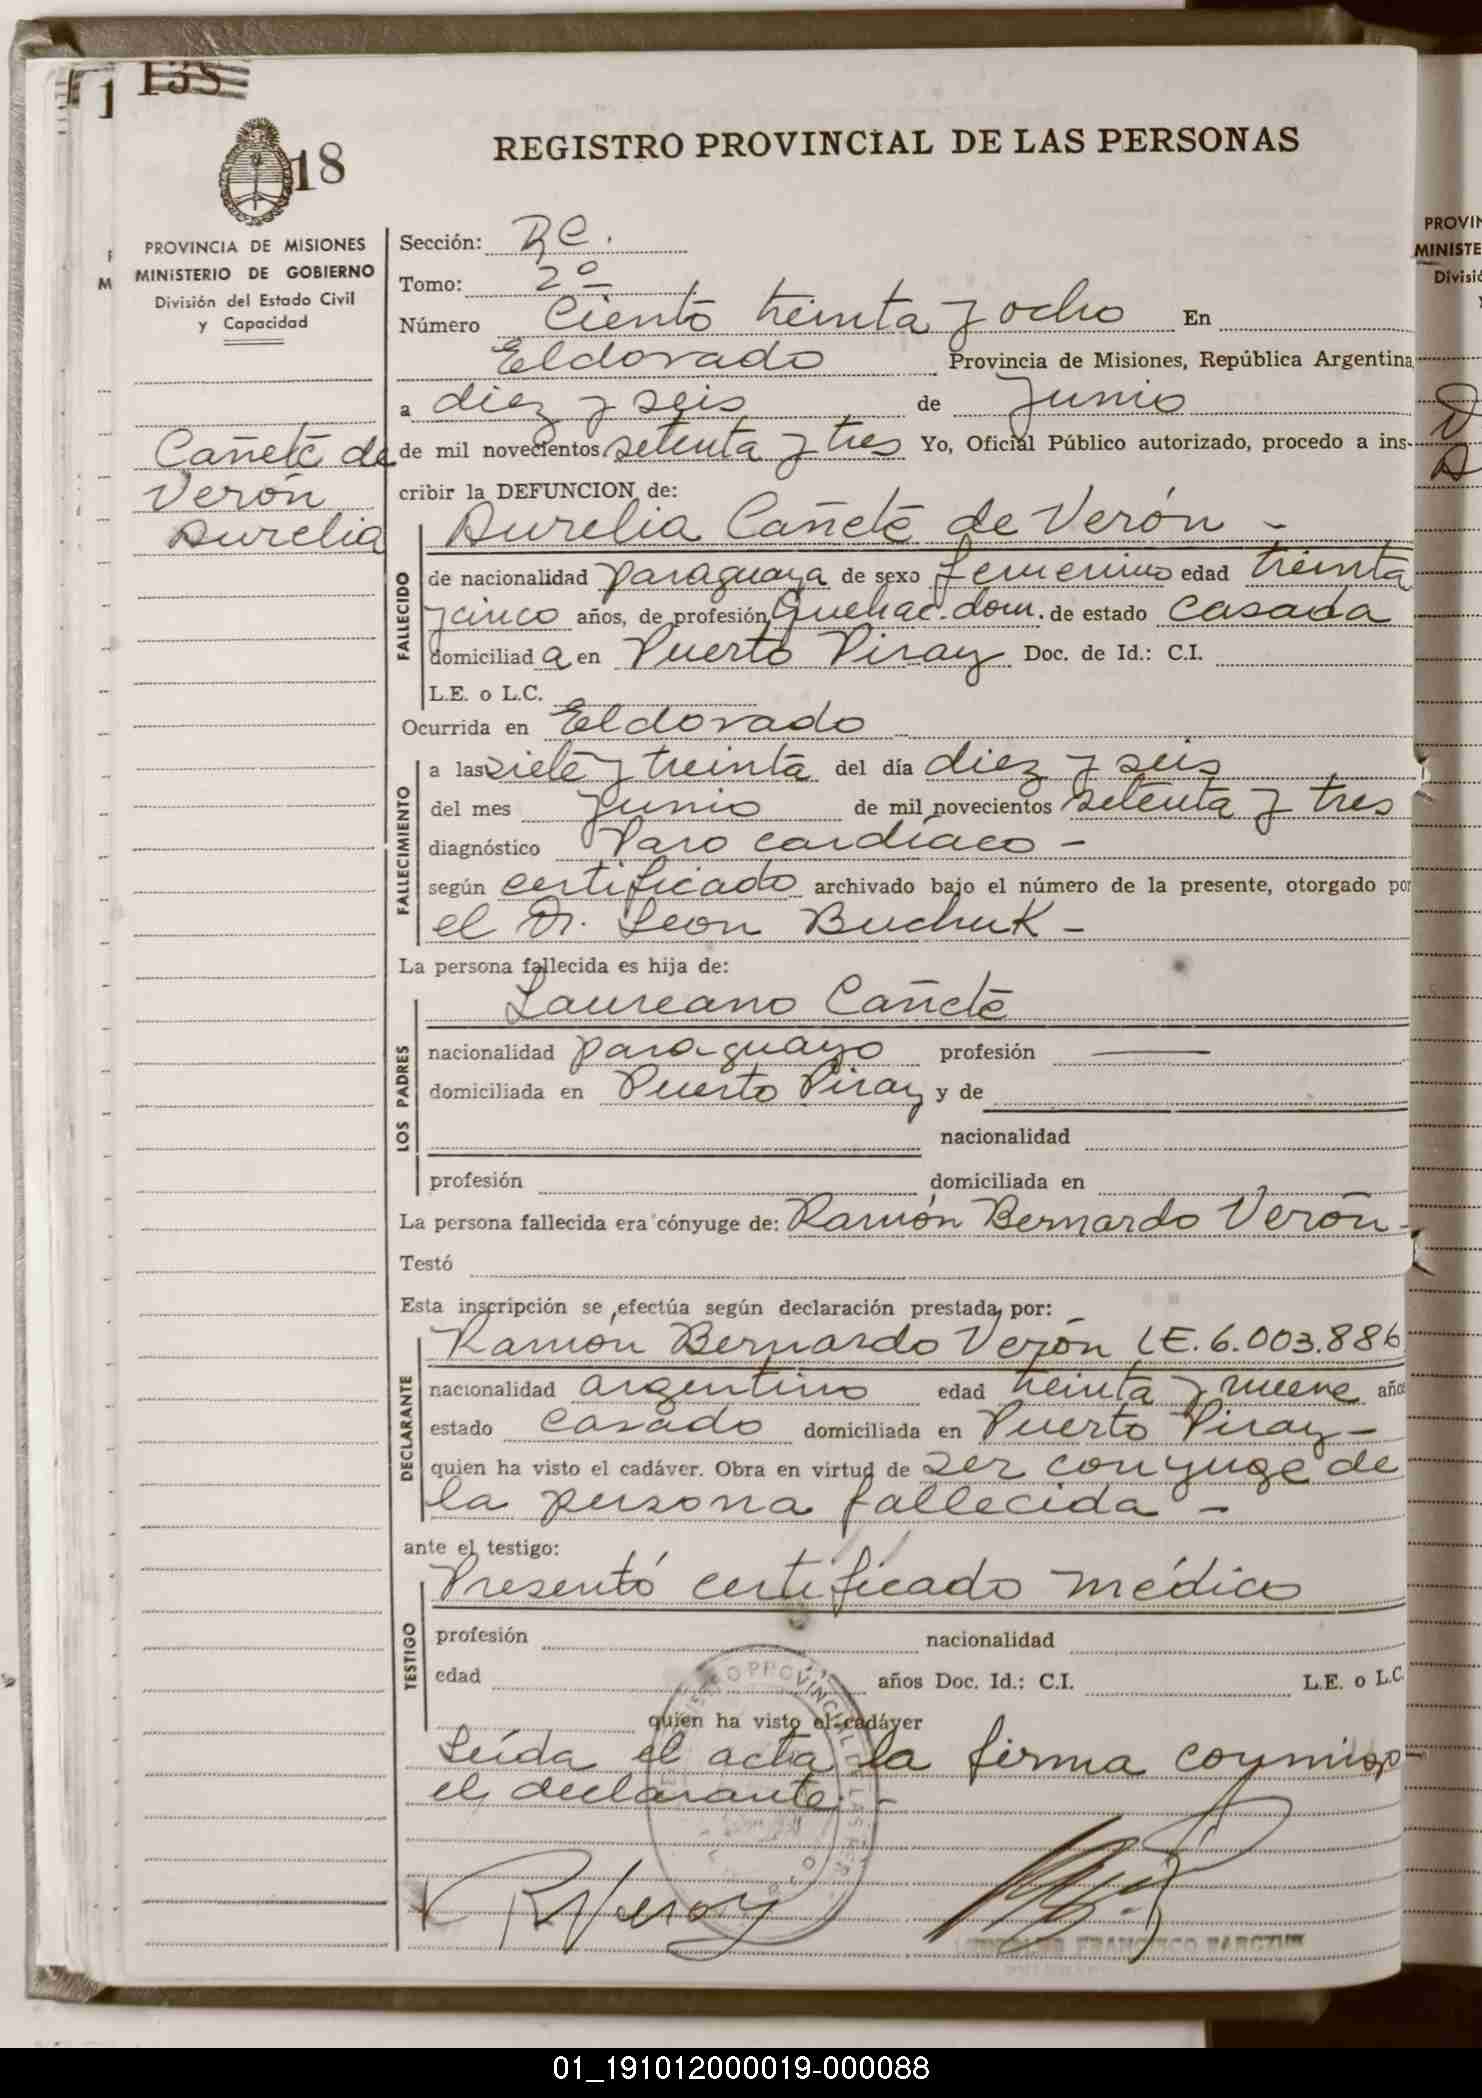 138
18
REGISTRO PROVINCIAL DE LAS PERSONAS
PROVINCIA DE MISIONES
MINISTERIO DE GOBIERNO
División del Estado Civil
y Capacidad
Cañete de
Verón
Aurelia
Sección: RC.
Tomo: 2º
Número Ciento treinta y ocho En
Eldorado Provincia de Misiones, República Argentina
a diez y seis de Junio
de mil novecientos setenta y tres Yo, Oficial Público autorizado, procedo a ins-
cribir la DEFUNCION de:
FALLECIDO
Aurelia Cañete de Verón -
de nacionalidad paraguaya de sexo femenino edad treinta
y cinco años, de profesión Quehac. dom. de estado casada
domiciliada en Puerto Piray Doc. de Id.: C.I.
L.E. o L.C.
Ocurrida en Eldorado
FALLECIMIENTO
a las siete y treinta del día diez y seis
del mes Junio de mil novecientos setenta y tres
diagnóstico Paro cardíaco -
según certificado archivado bajo el número de la presente, otorgado por
el Dr. Leon Buchuk -
La persona fallecida es hija de:
LOS PADRES
Laureano Cañete
nacionalidad paraguayo profesión —
domiciliada en Puerto Piray y de
nacionalidad
profesión domiciliada en
La persona fallecida era cónyuge de: Ramón Bernardo Verón -
Testó
Esta inscripción se efectúa según declaración prestada por:
DECLARANTE
Ramón Bernardo Verón LE. 6.003.886
nacionalidad argentino edad treinta y nueve años
estado casado domiciliada en Puerto Piray -
quien ha visto el cadáver. Obra en virtud de ser conyuge de
la persona fallecida -
ante el testigo:
TESTIGO
Presentó certificado médico
profesión nacionalidad
edad años Doc. Id.: C.I. L.E. o L.C.
quien ha visto el cadáver
Leída el acta la firma conmigo
el declarante. -
FRANCISCO
PROVIN
MINISTE
Divisió
01_191012000019-000088